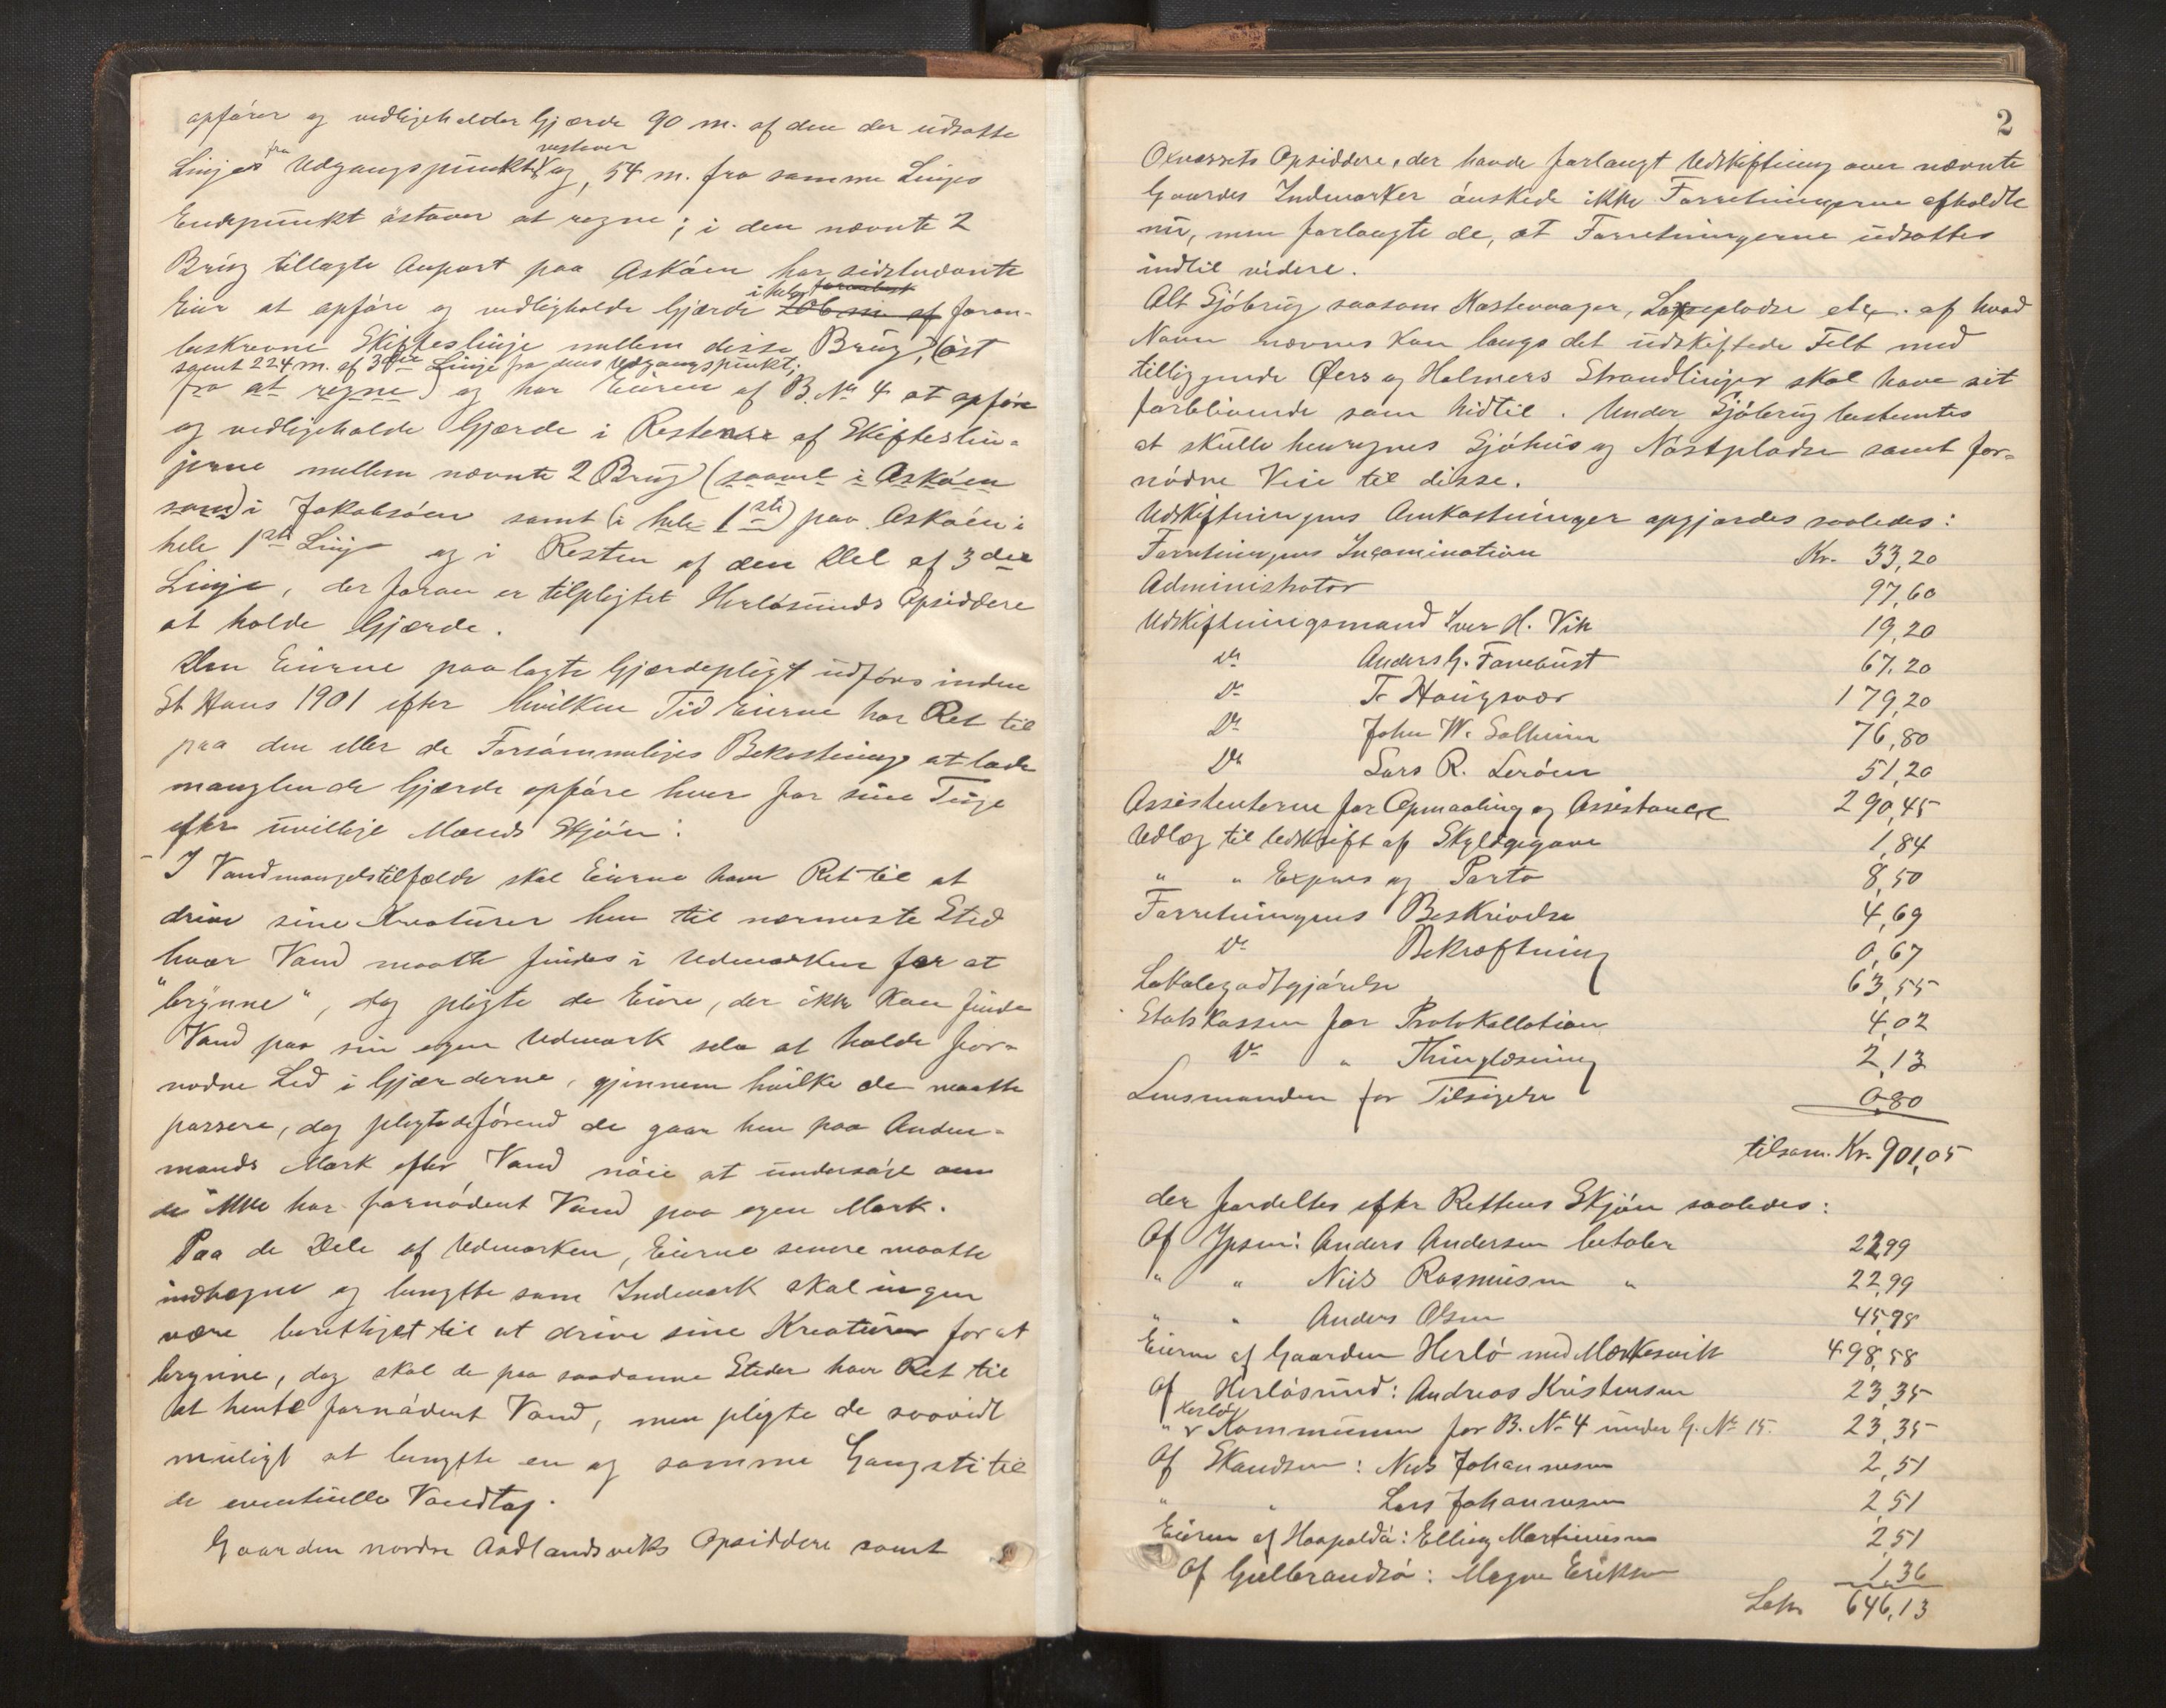 opfører og vedligeholder Gjærde 90 m. af den der udsatte
Linjes fra Udgangspunkt vestover og, 54 m. fra samme Linjes
Endepunkt østover at regne; i den nævnte 2
Brug tillagte Anpart paa Askøen har sidstnævnte
Eier at opføre og vedligholde Gjærde i hele foran-
beskrevne Skifteslinje mellem disse Brug, (øst
samt 224 m. af 3die Linje fra dens Udgangspunkt;
fra at regne) og har Eieren af B. No 4 at opføre
og vedligeholde Gjærde i Resten af Skifteslin-
jerne mellem nævnte 2 Brug (saavel i Askøen
som) i Jakobsøen samt (i hele 1ste) paa Askøen i
hele 1ste Linje og i Resten af den Del af 3die
Linje, der foran er tilpligtet Herløsunds Opsiddere
at holde Gjærde.
Den Eierne paalagte Gjærdepligt udføres inden
St Hans 1901 efter hvilken Tid Eierne har Ret til
paa den eller de Forsømmeliges Bekostning at lade
manglende Gjærde opføre hver for sine Teige
efter uvillige Mænds Skjøn.
I Vandmangelstilfælde skal Eierne have Ret til at
drive sine Kreaturer hen til nærmeste Sted
hvor Vand maatte findes i Udmarken for at
"brynne", dog pligte de Eiere, der ikke kan finde
Vand paa sin egen Udmark selv at holde for-
nødne Led i Gjærderne, gjennem hvilke de maatte
passere, dog pligte de førend de gaar hen paa Anden-
mands Mark efter Vand nøie at undersøge om
de ikke har fornødent Vand paa egen Mark.
Paa de Dele af Udmarken, Eierne senere maatte
indhegne og benytte som Indmark skal ingen
være berettiget til at drive sine Kreaturer for at
brynne, dog skal de paa saadanne Steder have Ret til
at hente fornødent Vand, men pligte de saavidt
muligt at benytte en og samme Gangsti til
de eventuelle Vandtag.
Gaarden nordre Aadlandsviks Opsiddere samt
2
Oxnæssets Opsiddere, der havde forlangt Udskiftning over nævnte
Gaardes Indmarker ønskede ikke Forretningerne afholdte
nu, men forlangte de, at Forretningerne udsattes
indtil videre.
Alt Sjøbrug saasom Kastevaager, Laxeplodse etc. af hvad
Navn nævnes kan langs det udskiftede Felt med
tilliggende Øers og Holmers Strandlinjer skal have sit
forblivende som hidtil. Under Sjøbrug bestemtes
at skulle henregnes Sjøhus og Nøstplodse samt for-
nødne Veie til disse.
Udskiftningens Omkostninger opgjordes saaledes:
Forretningens Incamination Kr. 33,20
Administrator 97,60
Udskiftningsmand Iver H. Vik 19,20
Do Anders G. Fanebust 67,20
Do T. Haugsvær 179,20
Do John W. Solheim 76,80
Do Lars R. Lerøen 51,20
Assistenterne for Opmaaling og Assistance 290,45
Udlæg til Udskrift af Skyldopgave 1,84
" " Expres og Porto 8,50
Forretningens Beskrivelse 4,69
Do Bekræftning 0,67
Lokalegodtgjørelse 63,55
Statskassen for Protokollation 4,02
Do " Thinglæsning 2,13
Lensmanden for Tilsigelse 0,80
tilsam. Kr. 901,05
der fordeltes efter Rettens Skjøn saaledes:
Af Ypsøi: Anders Andersen betaler 22,99
" " Nils Rasmusen " 22,99
" " Anders Olsen 45,98
Eierne af Gaarden Herlø med Mørkesvik 498,58
Af Herløsund: Andreas Kristensen 23,35
" Herlø Kommunen for B. No 4 under G. No 15. 23,35
Af Skandsen: Nils Johannesen 2,51
" " Lars Johannesen 2,51
Eieren af Haapoldø: Elling Martinusen 2,51
Af Gulbrandsø: Mogne Eriksen 1,36
Latr 646,13